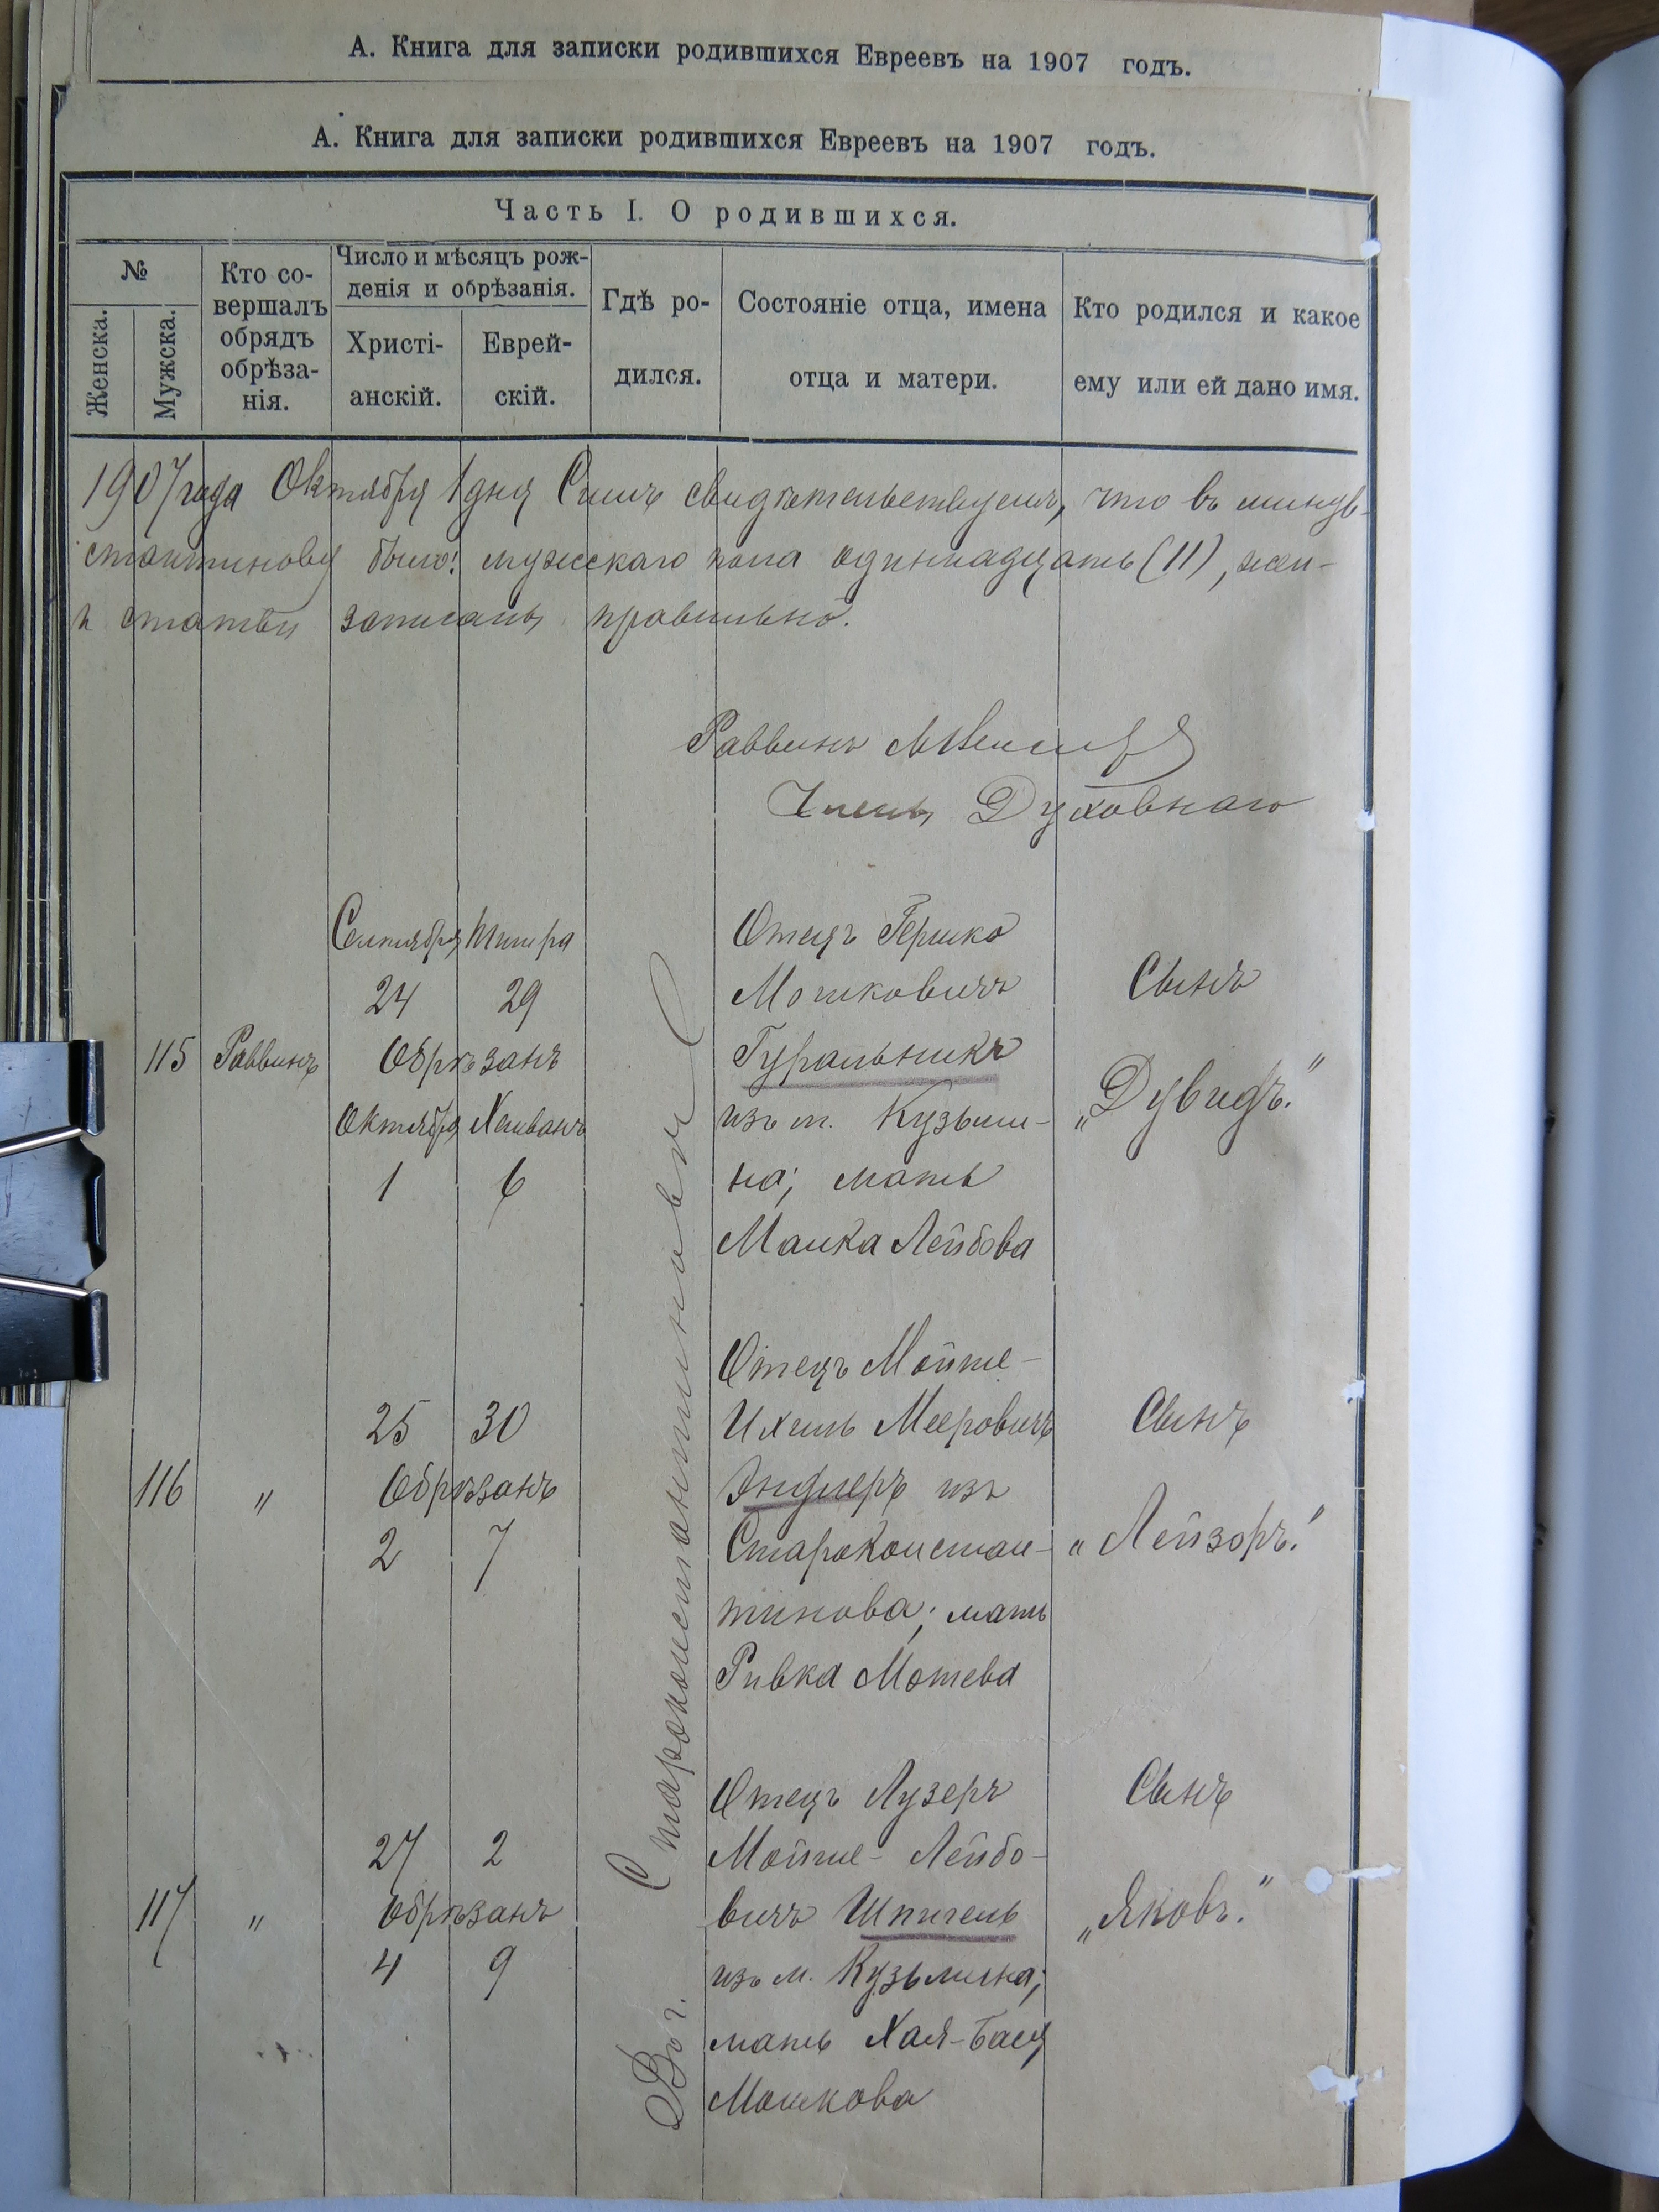 А. Книга для записки родившихся Евреевъ на 1907 годъ.
А. Книга для записки родившихся Евреевъ на 1907 годъ.
Часть I. О родившихся.
№
Женска.
Мужска.
Кто со-
вершалъ
обрядъ
обрѣза-
нія.
Число и мѣсяцъ рож-
денія и обрѣзанія.
Христі-
анскій.
Еврей-
скій.
Гдѣ ро-
дился.
Состояніе отца, имена
отца и матери.
Кто родился и какое
ему или ей дано имя.
1907 года Октября 1 дня Симъ свидѣтельствуемъ, что въ минув-
стантиновѣ было: мужескаго пола одиннадцать (11), жен-
и статьи записаны правильно.
Раввинъ
Члены Духовнаго
115
Раввинъ
Сентября Тишра
24 29
Обрѣзанъ
Октября Хешванъ
1 6
Въ г. Староконстантиновѣ
Отецъ Гершко
Мошковичъ
Гуральникъ
изъ м. Кузьми-
на; мать
Малка Лейбова
Сынъ
„Дувидъ."
116
"
25 30
Обрѣзанъ
2 7
Отецъ Мойше-
Ихиль Мееровичъ
Эндлеръ изъ
Староконстан-
тинова; мать
Ривка Мотева
Сынъ
„Лейзоръ."
117
"
27 2
Обрѣзанъ
4 9
Отецъ Лузеръ
Мойше-Лейбо-
вичъ Шпигель
изъ м. Кузьмина;
мать Хая-Бася
Мошкова
Сынъ
„Яковъ."